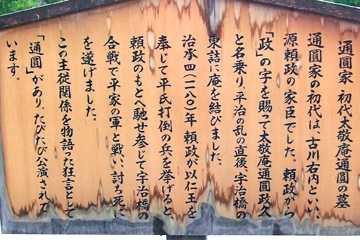 通圓家 初代太敬庵通圓の墓
通圓家の初代は、古川右内といい、
源頼政の家臣でした。頼政から
「政」の字を賜って太敬庵通圓政久
と名乗り、平治の乱の直後、宇治橋の
東詰に庵を結びました。
治承四（一一八〇）年頼政が以仁王を
奉じて平氏打倒の兵を挙げると
頼政のもとへ馳せ参じて宇治橋の
合戦で平家の軍と戦い、討ち死に
を遂げました。
この主従関係を物語った狂言として
「通圓」があり、たびたび公演されて
います。